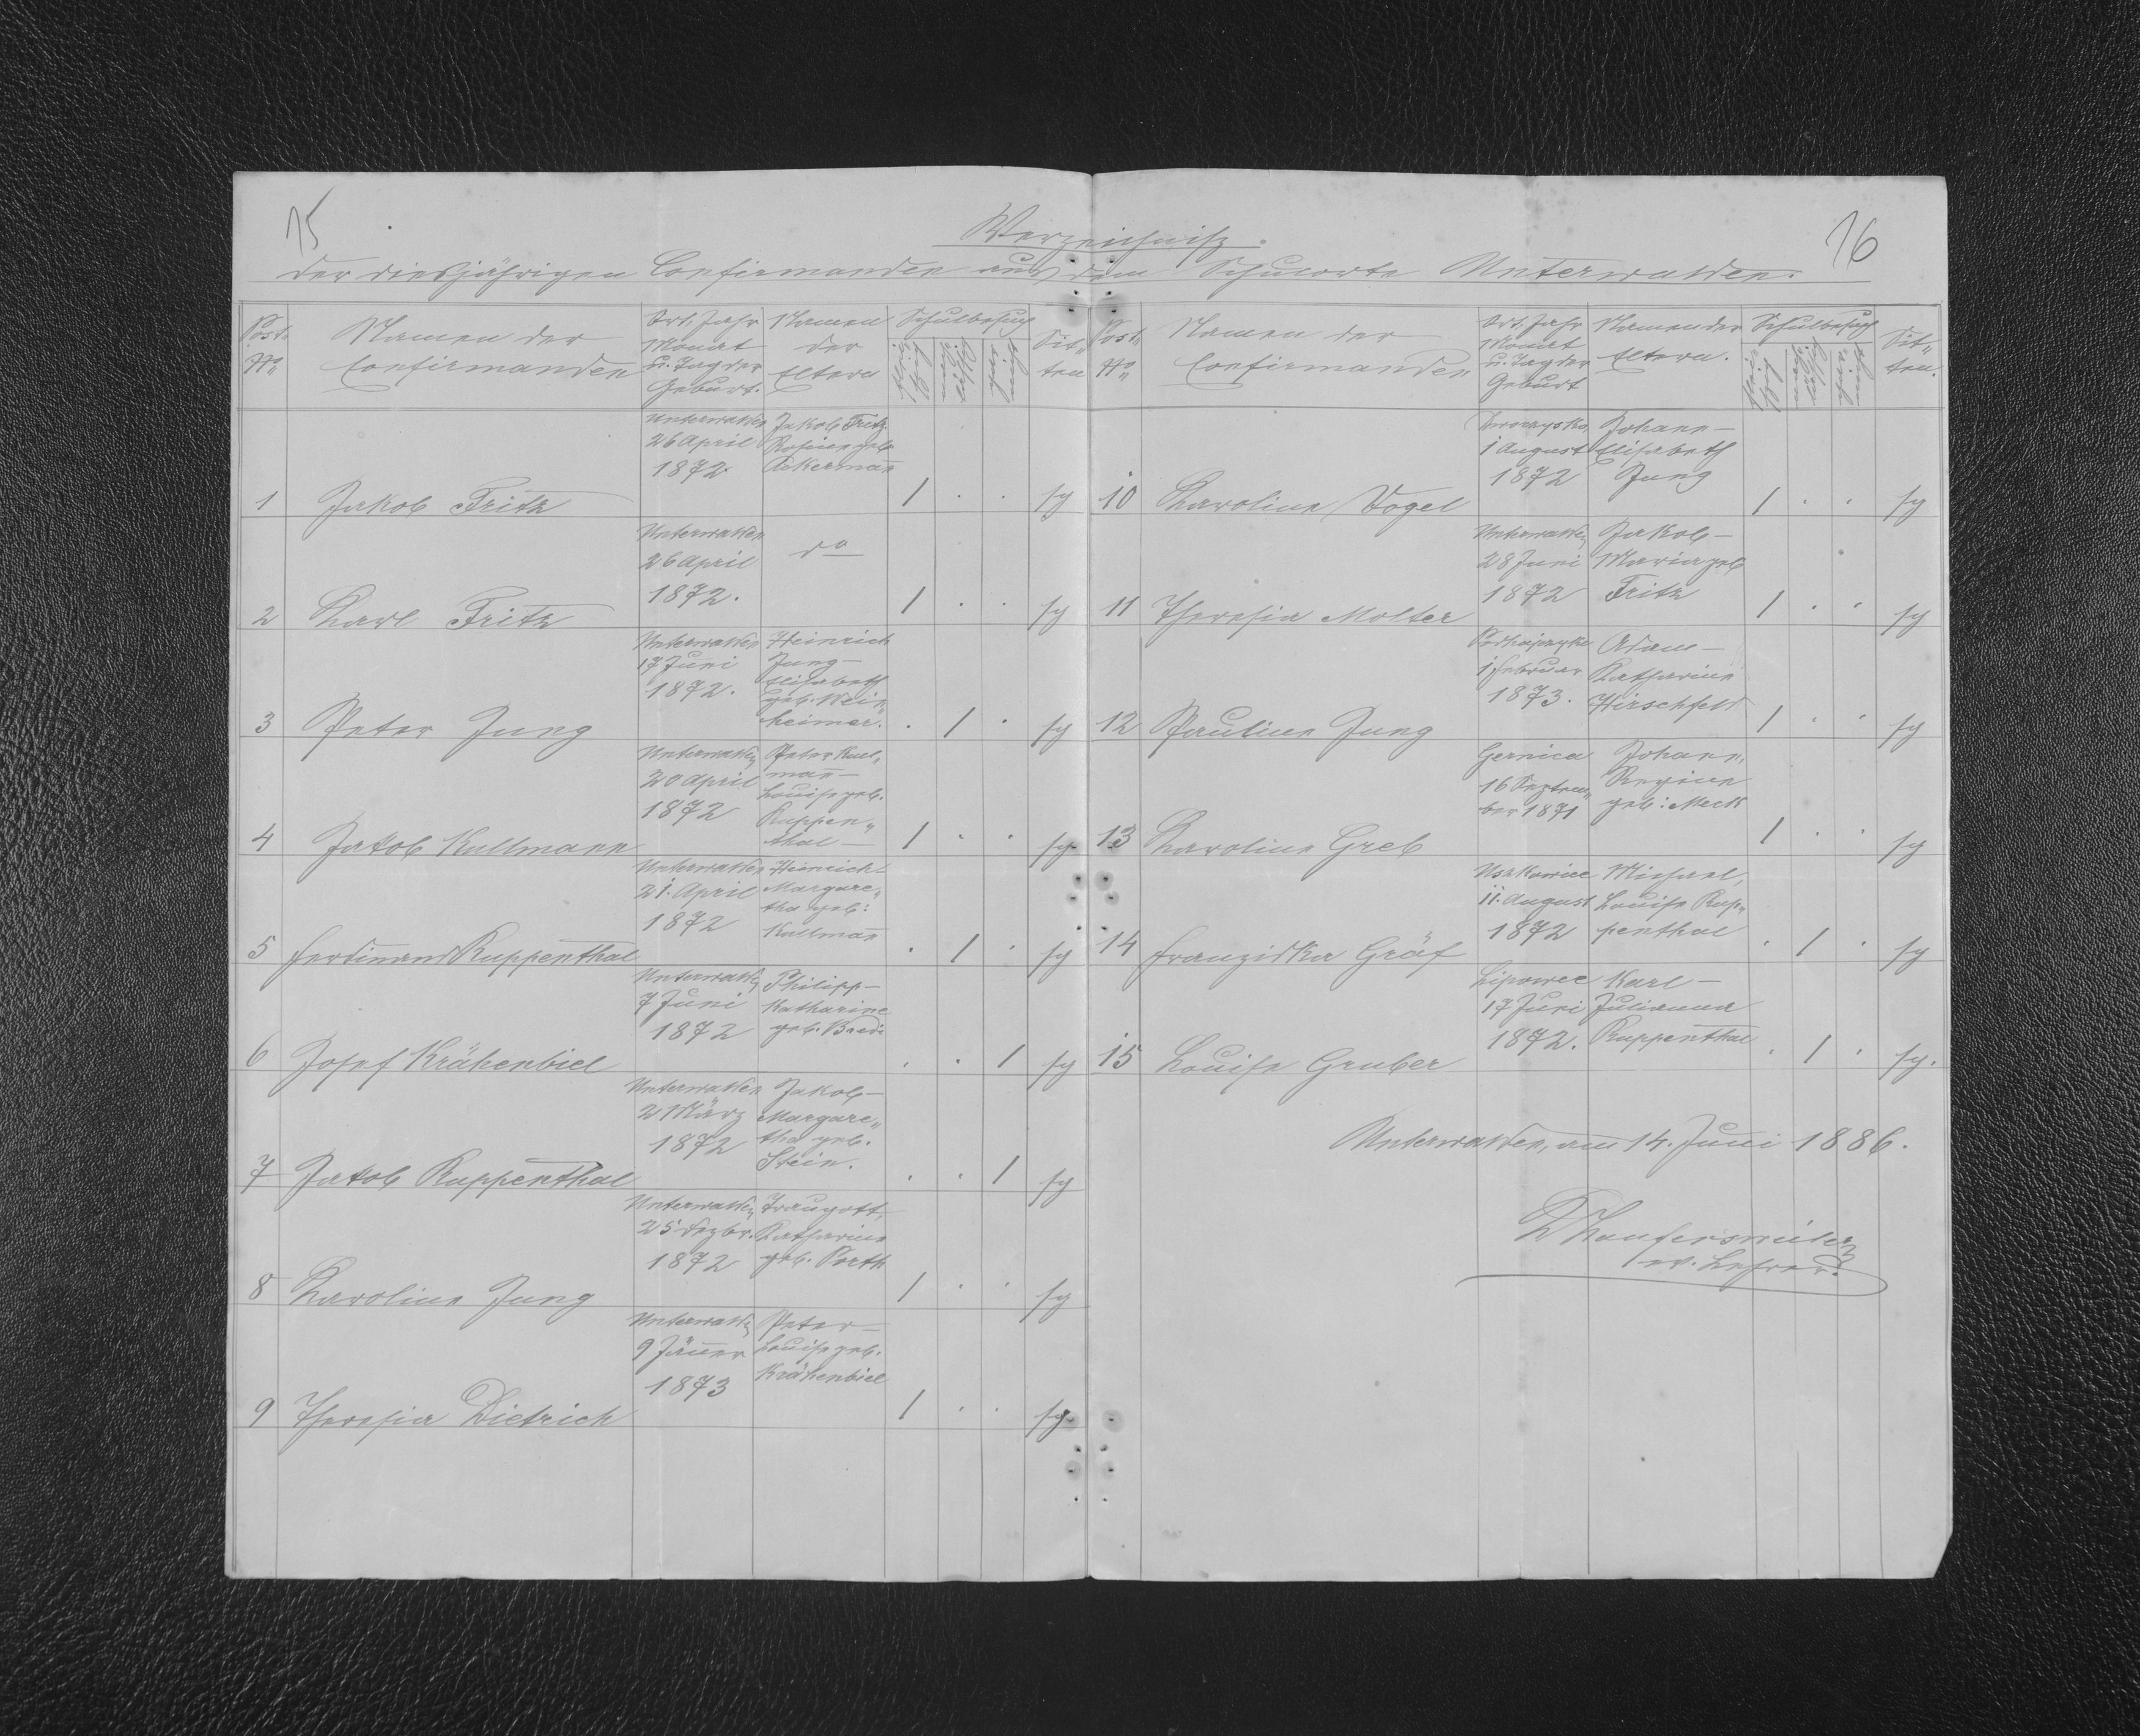 15
16
Verzeichniß
der diesjährigen Confirmanden aus dem Schulorte Unterwalden.
Post- No
Namen der Confirmanden
Ort, Jahr Monat u. Tag der Geburt.
Namen der Eltern
Schulbesuch
fleißig
Sitten
1 Jakob Fritz
Unterwalden
26 April
1872.
Jakob Fritz
Rosina geb
Ackermañ
1 . . sg
2 Karl Fritz
Unterwalden
26 April
1872.
do
1 . . sg
3 Peter Jung
Unterwalden
17 Juni
1872.
Heinrich
Jung –
Elisabeth
geb. Wein„
heimer.
. 1 . sg
4 Jakob Kullmann
Unterwalden
20 April
1872
Peter Kull„
mañ –
Louise geb.
Ruppen„
thal –
1 . . sg
5 Ferdinand Ruppenthal
Unterwalden
21. April
1872
Heinrich –
Margare„
tha geb:
Kullmañ
. 1 . sg
6 Josef Krähenbiel
Unterwalden
7 Juni
1872
Philipp –
Katharine
geb.
. . 1 sg
7 Jakob Ruppenthal
Unterwalden
2 März
1872
Jakob –
Margare„
tha geb.
Stein.
. . 1 sg
8 Karoline Jung
Unterwalden
25 Dezbr.
1872
Traugott,
Katharine
geb. Porth
1 . . sg
9 Theresia Dietrich
Unterwalden
9 Jäner
1873
Peter –
Louise geb.
Krähenbiel
1 . . sg
Post- No
Namen der Confirmanden
Ort, Jahr Monat u. Tag der Geburt
Namen der Eltern.
Schulbesuch
fleißig
Sitten.
10 Karoline Vogel
1 August
1872
Johann –
Elisabeth
Jung
1 . . sg
11 Theresia Molter
Unterwalden
28 Juni
1872
Jakob –
Maria geb
Fritz
1 . . sg
12 Pauline Jung
1 Februar
1873.
Adam –
Katharine
Hirschfeld
1 . . sg
13 Karoline Greb
Gernica
16 Septem„
ber 1871
Johann,
Regine
geb: Meck
1 . . sg
14 Franziska Gräf
Uszkowice
11. August
1872
Michael,
Louise Rup„
penthal
. 1 . sg
15 Louise Gruber
Lipowec
17 Juni
1872.
Karl –
Julianna
Ruppenthal
. 1 . sg.
Unterwalden, am 14. Juni 1886.
ev. Lehrer.